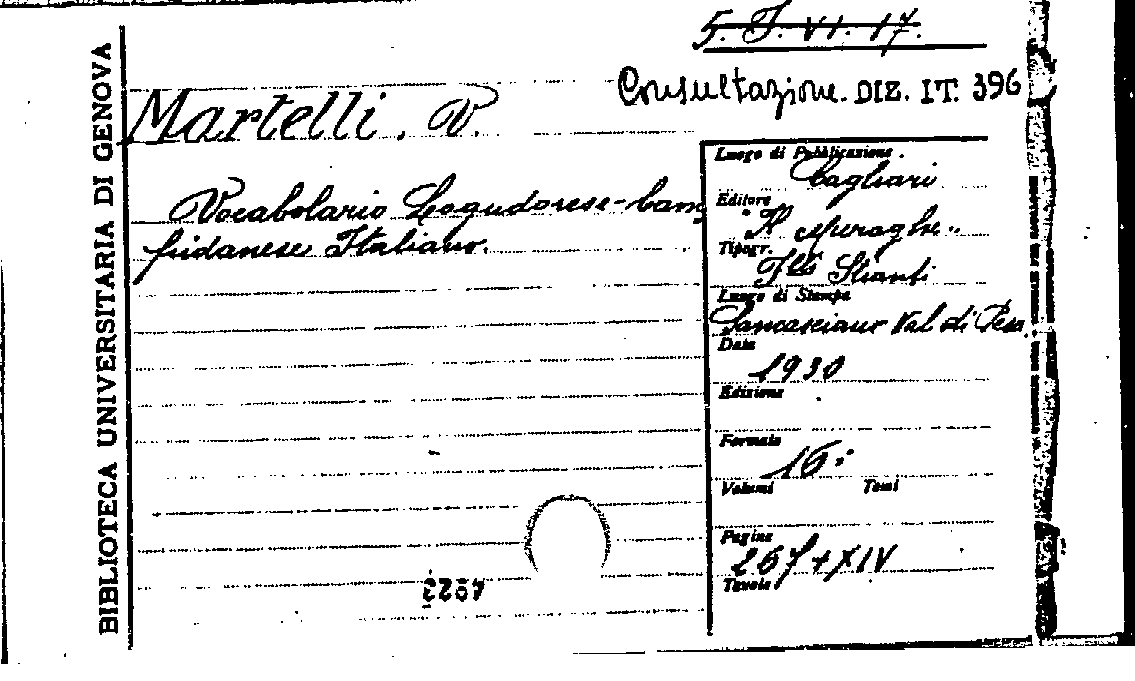 5. J. VI. 17.
Consultazione. DIZ. IT. 396
BIBLIOTECA UNIVERSITARIA DI GENOVA
Martelli. V.
Vocabolario Logudorese-Cam
pidanese Italiano.
Luogo di Pubblicazione.
Cagliari
Editore
"Il Nuraghe"
Tipogr.
Flli Stianti
Luogo di Stampa
Sancasciano Val di Pesa
Data
1930
Edizione
Formato
16°
Volumi Tomi
Pagine
267+XIV
Tavole